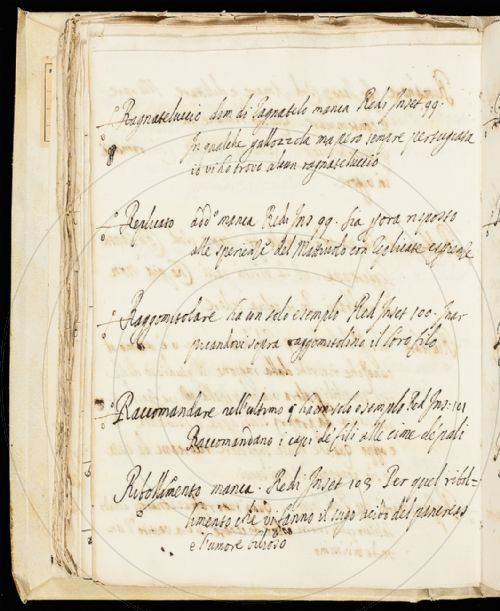 Ragnateluccio dim. di Ragnatelo manca Redi Inset 99.
In qualche gallozzola ma però sempre pertugiata
io vi ho trovo alcun ragnateluccio
Replicato add.o manca Redi Ins 99. Sia ora risposto
alle sperienze del Mattiuolo con replicate esperienze
Raggomitolare ha un solo esemplo Redi Inset 100. Inar
picandovi sopra raggomitolino il loro filo
Raccomandare nell'ultimo § ha un solo esemplo Red Ins: 101
Raccomandano i capi de fili alle cime de pali
Ribollimento manca. Redi Inset 108. Per quel ribol-
limento che vi fanno il sugo acido del pancreas
e l'umore bilioso